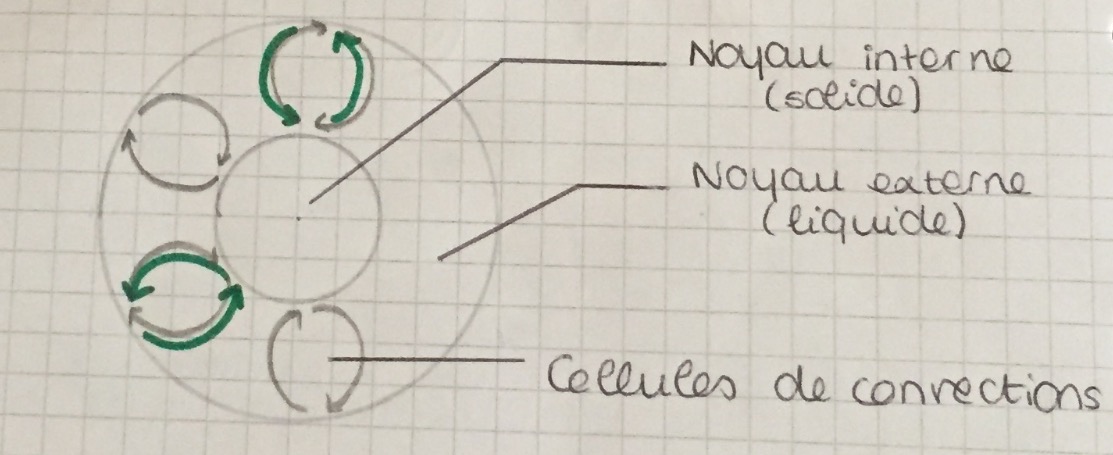 Noyau interne
(solide)
Noyau externe
(liquide)
Cellules de convections